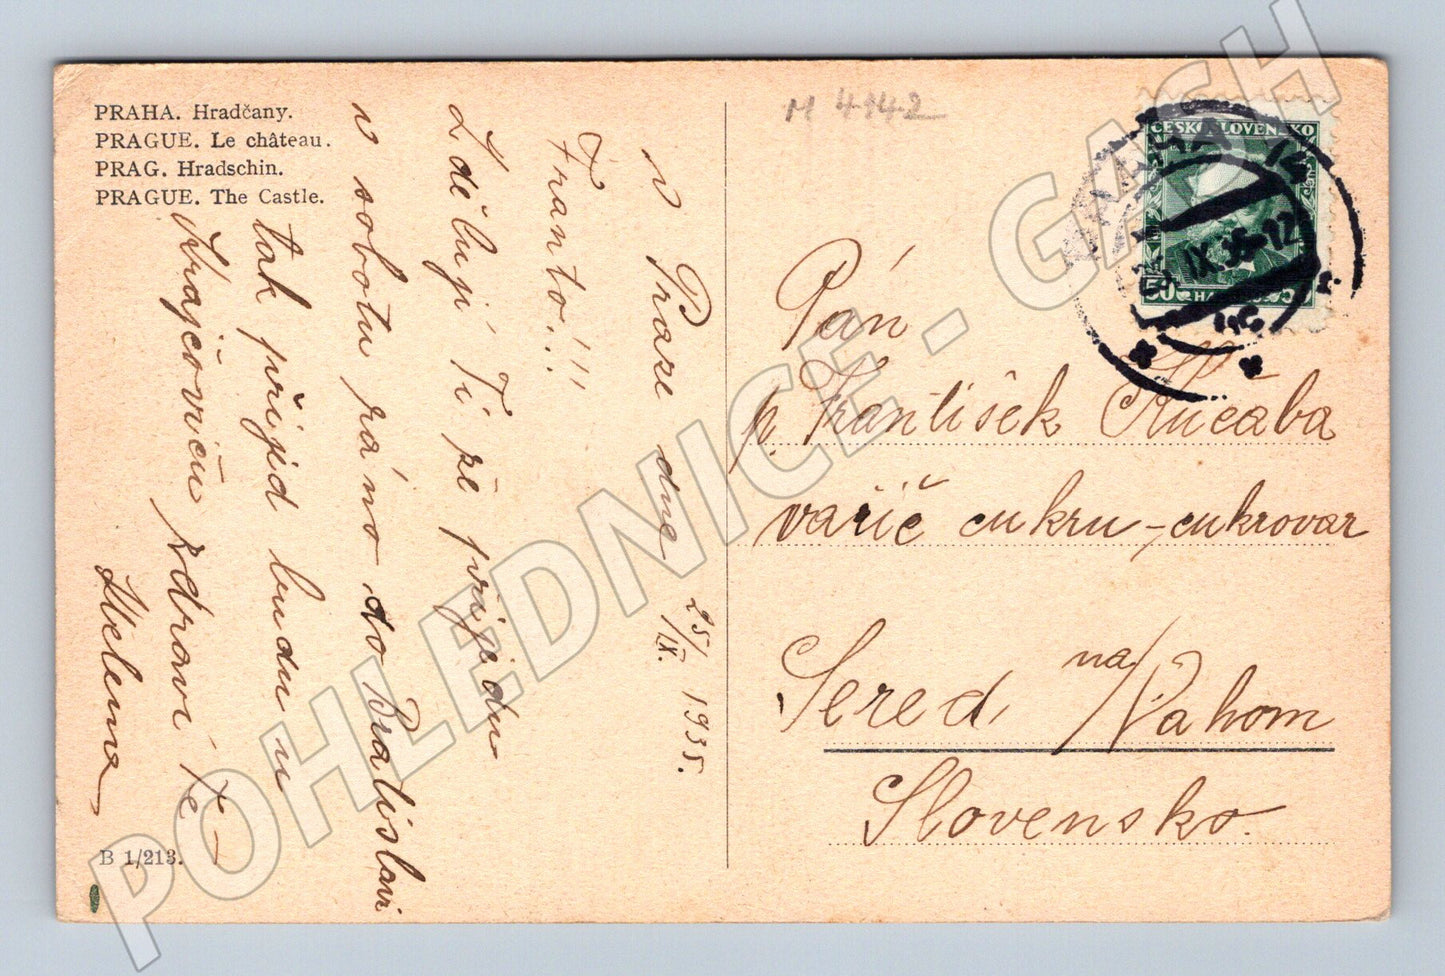 PRAHA. Hradčany.
PRAGUE. Le château.
PRAG. Hradschin.
PRAGUE. The Castle.
v Praze dne 25/IX. 1935.
Franto!!!
Zděluji Ti že přijedu
v sobotu ráno do Bratislavi
tak přijid budu u
Krajčovičů Zdraví Tě –
Helena
B 1/213.
M 4142
ČESKOSLOVENSKO
50
PRAHA 12
IX.35-12
Pán
p. František Kučaba
vařič cukru – cukrovar
Sered, na/Vahom
Slovensko.
POHLEDNICE - GASH